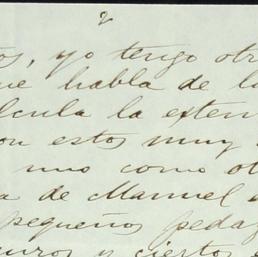 2
os, yo tengo otr
ue habla de l
lcula la exten
on estos muy
uno como ot
a de Manuel
pequeños pedaz
uros y ciertos